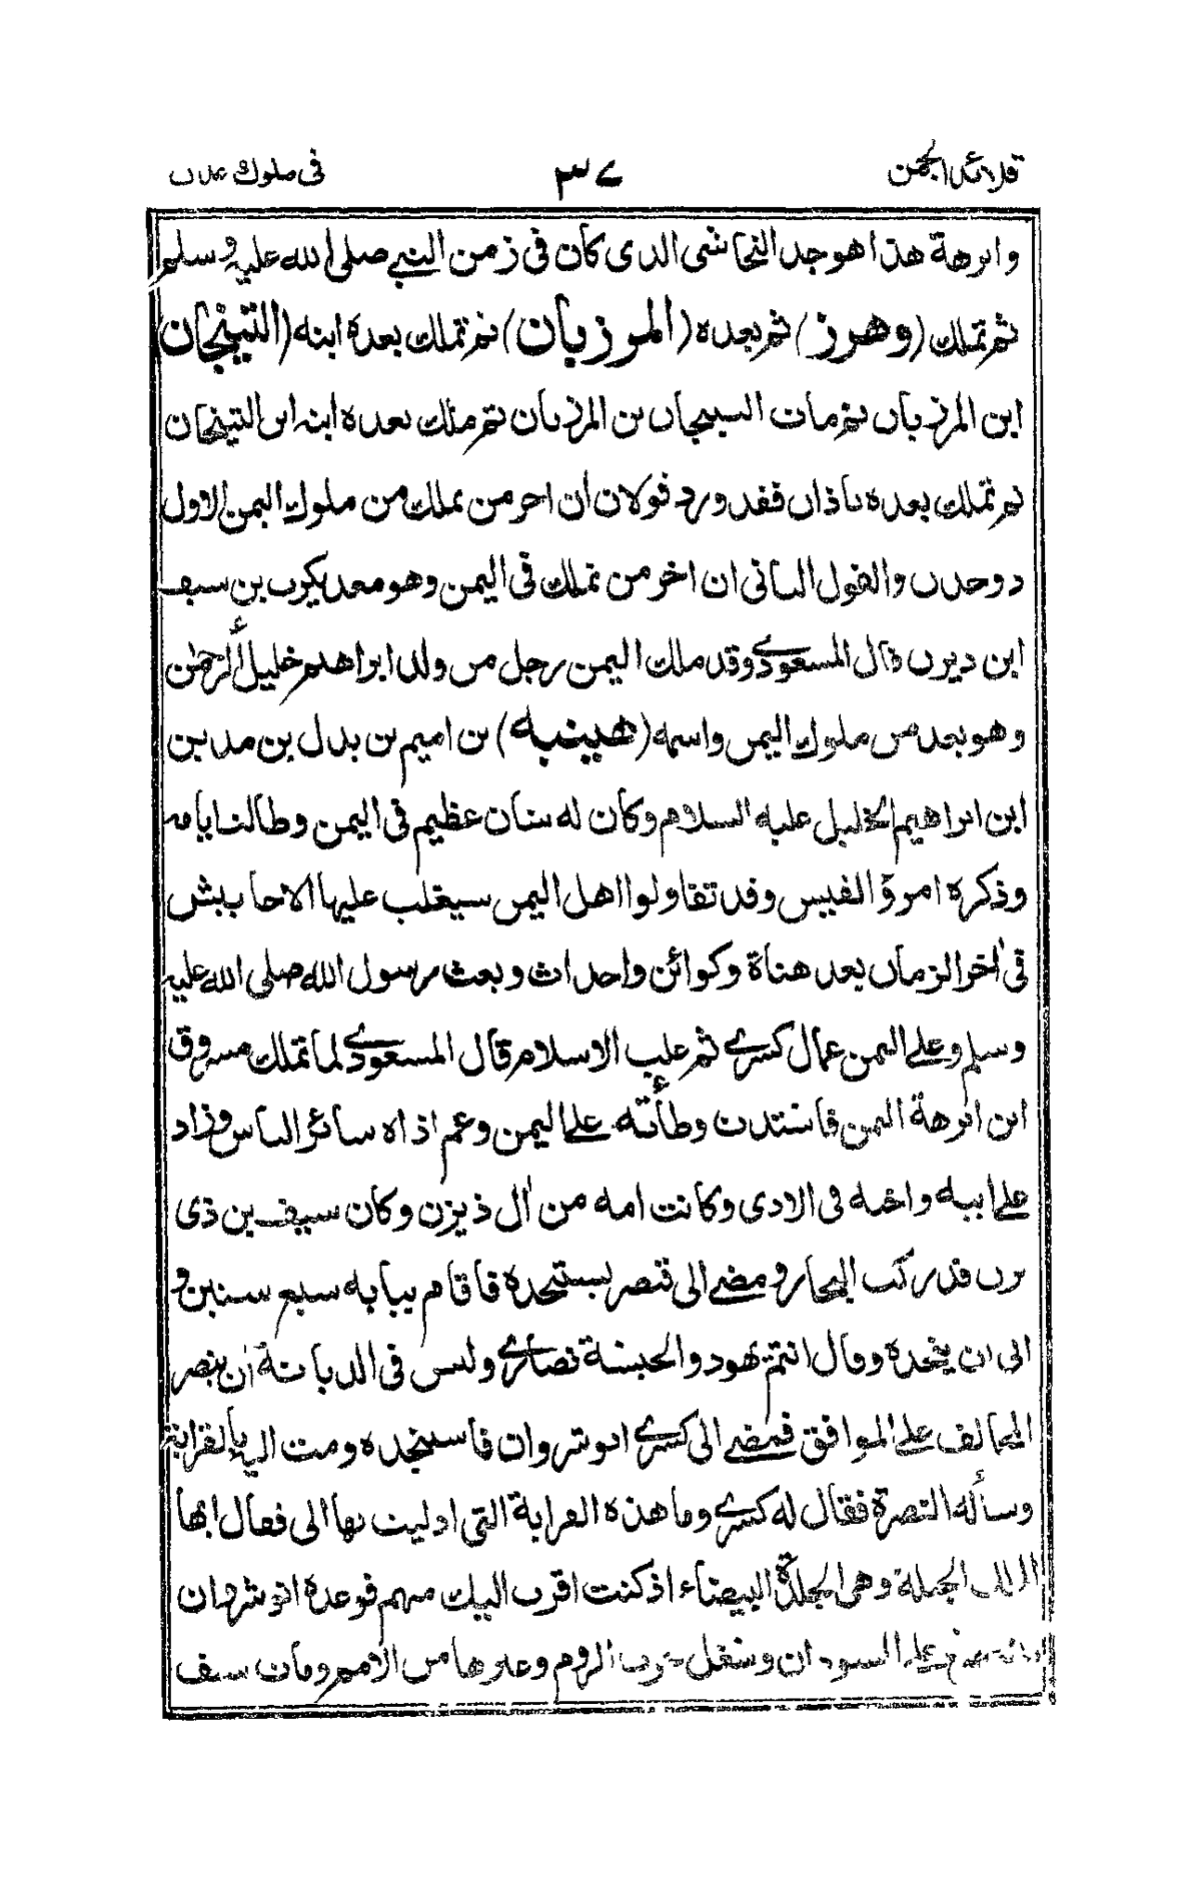 قلائد الجمن ٣٧ فى ملوك عدن
وابرهة هذا هو جد النجاشى الذى كان فى زمن النبى صلى الله عليه وسلم
ثم تملك (وهرز) ثم بعده (المرزبان) ثم تملك بعده ابنه (التينجان)
ابن المرزبان ثم مات التينجان بن المرزبان ثم ملك بعده ابنه ابن التينجان
ثم تملك بعده باذان فقد ورد قولان ان اخر من تملك من ملوك اليمن الاول
ذوجدن والقول الثانى ان اخر من تملك فى اليمن وهو معديكرب بن سيف
ابن ذيزن قال المسعودى وقد ملك اليمن رجل من ولد ابراهيم خليل الرحمن
وهو يعد من ملوك اليمن واسمه (هينبه) بن اميم بن بدل بن مدين
ابن ابراهيم الخليل عليه السلام وكان له شان عظيم فى اليمن وطالت ايامه
وذكره امرؤ القيس وقد تقاولوا اهل اليمن سيغلب عليها الاحابيش
فى اخر الزمان بعد هناة وكوائن واحداث وبعث رسول الله صلى الله عليه
وسلم وعلى اليمن عمال كسرى ثم غلب الاسلام قال المسعودى لما تملك مسروق
ابن ابرهة اليمن فاشتدت وطأته على اليمن وعم اذاه سائر الناس وزاد
على ابيه واخيه فى الاذى وكانت امه من آل ذيزن وكان سيف بن ذى
يزن قد ركب البحار ومضى الى قيصر يستنجده فاقام ببابه سبع سنين و
ابى ان ينجده وقال انتم يهود والحبشة نصارى وليس فى الديانة ان ينصر
المخالف على الموافق فمضى الى كسرى انوشروان فاستنجده ومت اليه بالقرابة
وسأله النصرة فقال له كسرى وما هذه القرابة التى ادليت بها الى فقال ايها
الملك الجبلة وهى الجلدة البيضاء اذ كنت اقرب اليك منهم فوعده انوشروان
على السودان وشغل بحرب الروم وغيرها من الامم ومات سيف